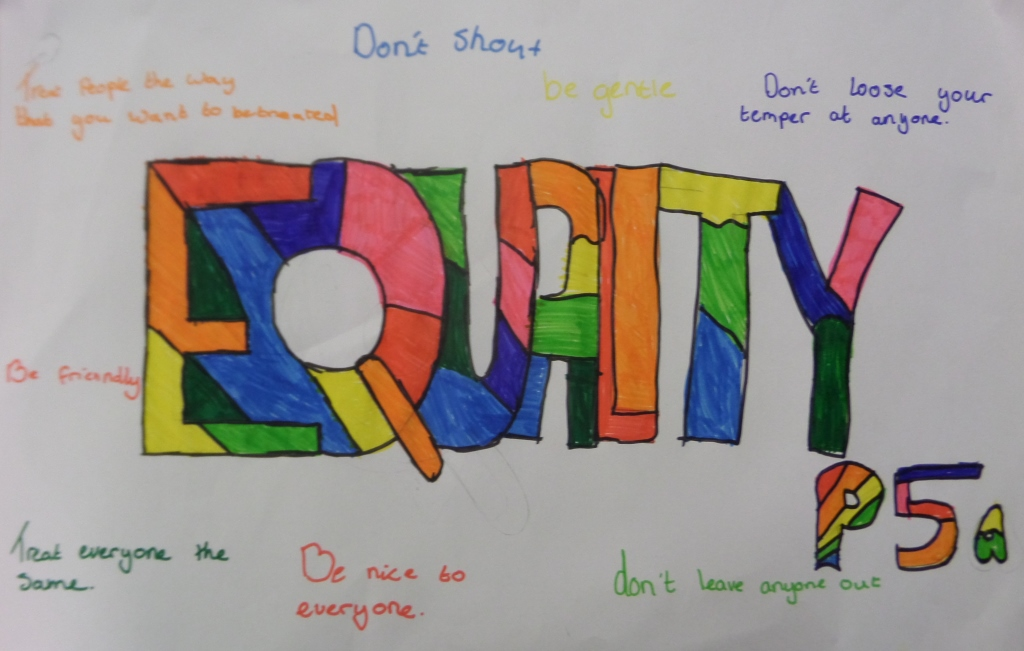 Don't Shout
Treat People the way
that you want to be treated
be gentle
Don't loose your
temper at anyone.
EQUALITY
Be friendly
P5A
Treat everyone the
Same.
Be nice to
everyone.
don't leave anyone out